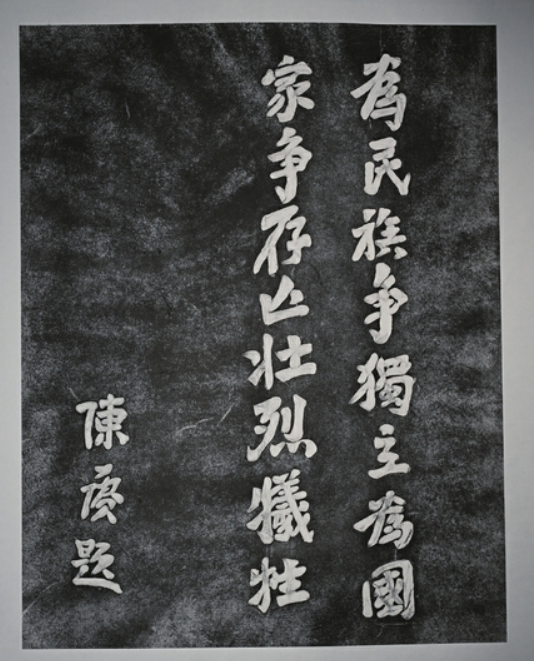 為民族争獨立為國
家争存亡壯烈犧牲
陳賡題